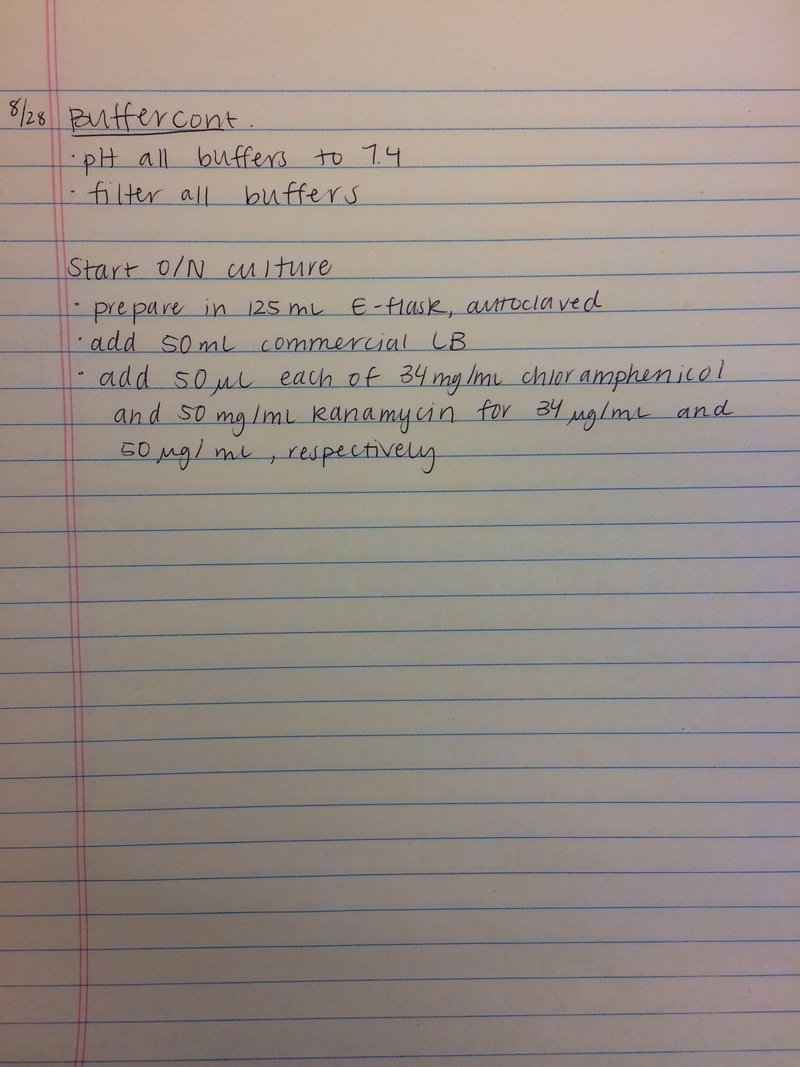 8/28 Buffer cont.
· pH all buffers to 7.4
· filter all buffers
Start O/N culture
· prepare in 125 mL E-flask, autoclaved
· add 50 mL commercial LB
· add 50 μL each of 34 mg/mL chloramphenicol
and 50 mg/mL kanamycin for 34 μg/mL and
50 μg/mL, respectively